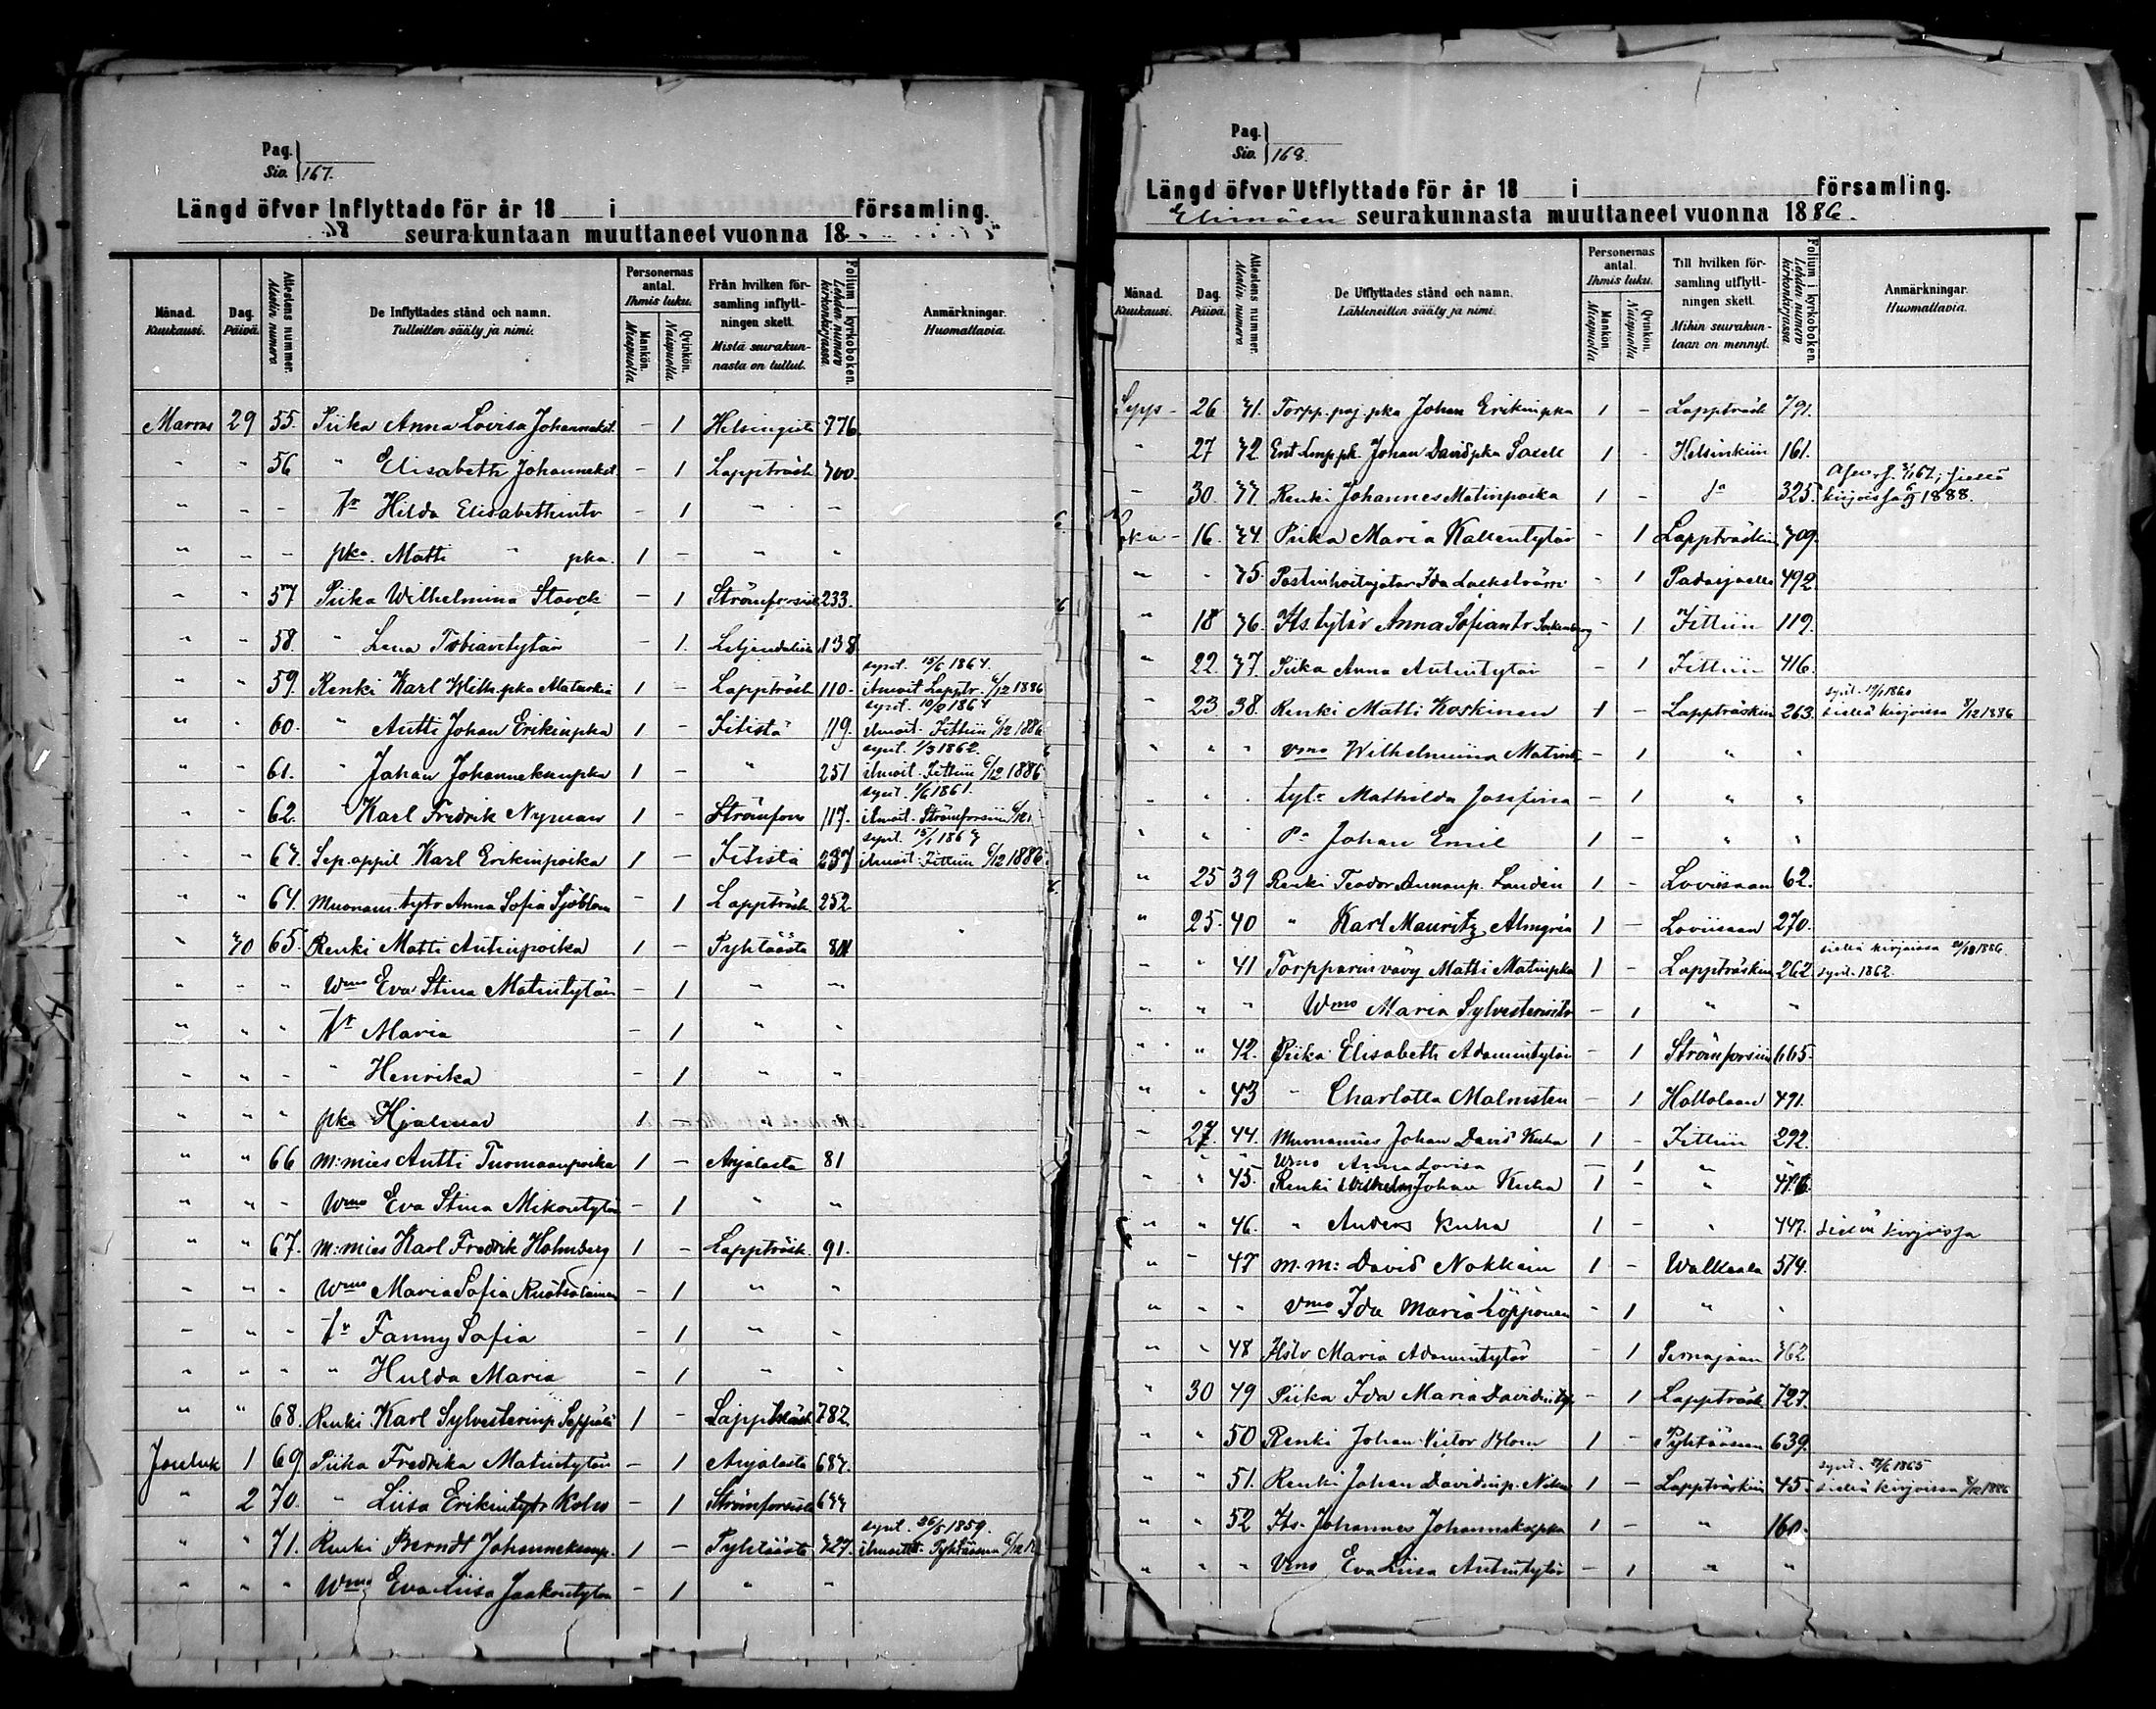 Pag.
Siv. 167.
Längd öfver Inflyttade för år 18 i församling.
18 seurakuntaan muuttaneet vuonna 18
Månad. Kuukausi.
Dag. Päivä.
Attestens nummer. Alestin numero
De Inflyttades stånd och namn. Tulleitten sääty ja nimi.
Personernas antal. Ihmis luku.
Mankön. Miespuolla.
Qvinkön. Naispuolla.
Från hvilken församling inflyttningen skett. Mistä seurakunnasta on tullut.
Folium i kyrkoboken. Lehden numero kirkonkirjassa.
Anmärkningar. Huomattavia.
Marras 29 55. Piika Anna Lovisa Johanneket. - 1 Helsingistä 776.
" " 56 " Elisabeth Johanneket. - 1 Lappträsk 700.
" - - tr Hilda Elisabethintr - 1 " -
" " - pka. Matti " pka. 1 - " "
" " 57 Piika Wilhelmina Starck - 1 Strömforsist 233.
" " 58. " Lena Tobiantytär - 1. Liljendalista 138
synt. 15/6 1864.
" " 59. Renki Karl Wilh. pka Matuskia 1 - Lappträsk 110. ilmoit Lapptr. 6/12 1886
synt. 10/2 1864
" " 60. " Antti Johan Erikinpka 1 - Iitistä 119. ilmoit. Iittiin 6/12 1886
synt. 1/3 1862.
" " 61. " Johan Johanneksenpka 1 - " 251 ilmoit. Iittiin 6/12 1886
synt. 1/6 1861.
" " 62. " Karl Fredrik Nyman 1 - Strömfors 117. ilmoit. Strömforsiin 6/12
synt. 15/1 1867
" " 63. Sep. oppil Karl Erikinpoika 1 - Iitistä 237 ilmoit. Iittiin 6/12 1886
" " 64. Muonam. tytr Anna Sofia Sjöblom - 1 Lappträsk 252
" 30 65. Renki Matti Antinpoika 1 - Pyhtäästä 81
" " " Wmo Eva Stina Matintytär - 1 " "
" " " tr Maria - 1 " "
" " - " Henrika - 1 " "
" " " pka Hjalmar 1 -
" " 66 M:mies Antti Tuomaanpoika 1 - Anjalasta 81
" " - Wmo Eva Stina Mikontytär - 1 " "
" " 67. M:mies Karl Fredrik Holmberg 1 - Lappträsk 91.
- " - Wmo Maria Sofia Ruotsalainen - 1 " "
- " - tr Fanny Sofia - 1 " -
" - - " Hulda Maria - 1 " "
" " 68. Renki Karl Sylvesterinp. Seppälä 1 - Lappträsk 782.
Jouluk 1 69. Piika Fredrika Matintytär - 1 Anjalasta 687.
" 2 70. " Liisa Erikintytr Koho - 1 Strömforsista 677
synt. 26/5 1859.
" " 71. Renki Berndt Johanneksenp. 1 - Pyhtäästä 327. ilmoitt. Pyhtäässä 6/12
" " " Wmo Eva Liisa Jaakontytär - 1 " "
Pag.
Siv. 168.
Längd öfver Utflyttade för år 18 i församling.
Elimäen seurakunnasta muuttaneet vuonna 1886.
Månad. Kuukausi.
Dag. Päivä.
Attestens nummer. Alestin numero
De Utflyttades stånd och namn. Lähteneitten sääty ja nimi.
Personernas antal. Ihmis luku.
Mankön Miespuolla.
Qvinkön. Naispuolla
Till hvilken församling utflyttningen skett. Mihin seurakuntaan on mennyt.
Folium i kyrkoboken. Lehden numero kirkonkirjassa.
Anmärkningar. Huomattavia.
Syys - 26 31. Torpp. poj. pka Johan Erikinpka 1 - Lappträsk 791.
" 27 32 Ent Lmp. pk. Johan Davidpka Saxell 1 - Helsinkiin 161.
- 30. 33. Renki Johannes Matinpoika 1 - " 325. kirjoissa 1888.
Loka - 16. 34. Piika Maria Kallentytär - 1 Lappträskiin 309.
" " 35. Postinhoitajatar Ida Lackström - 1 Padasjoelle 492
" 18 36. Its. tytär Anna Sofiantr - 1 Iittiin 119.
" 22. 37. Piika Anna Antintytär - 1 Iittiin 416.
synt. 19/1 1860
" 23 38. Renki Matti Koskinen 1 - Lappträskiin 263. siellä kirjoissa 8/12 1886
" " " Vmo Wilhelmiina Matint. - 1 " "
" " " tytr Mathilda Josefina - 1 " "
" " " Pa Johan Emil 1 - " "
" 25 39 Renki Teodor Annanp. Landin 1 - Loviisaan 62.
" 25. 40 " Karl Mauritz Almgrén 1 - Loviisaan 270.
siellä kirjoissa 20/12 1886.
" " 41 Torpparin vävy Matti Matinpka 1 - Lappträskiin 262. synt. 1862.
" " " Wmo Maria Sylvesterintr - 1 " "
" " 42. Piika Elisabeth Adamintytär - 1 Strömforsiin 665.
" " 43 " Charlotta Malmsten - 1 Hollolaan 491.
" 27. 44. Muonamies Johan David Kuha 1 - Iittiin 292.
" " Wmo Anna Lovisa - 1 " "
" " 45. Renki Wilhelm Johan Kuha 1 - "
" " 46. " Anders Kuha 1 - " 447. siellä kirjoissa
" - 47 M.m: David Nokkain 1 - Walkeala 514.
" " " Vmo Ida Maria Löppönen - 1 " "
" " 48 Itstr Maria Adamintytär - 1 Pernajaan 362
" 30 49 Piika Ida Maria Davidintyt. - 1 Lappträsk 727.
" " 50 Renki Johan Victor Blom 1 - Pyhtääseen 639.
synt. 1865
" " 51. Renki Johan Davidinp. 1 - Lappträskiin 45. siellä kirjoissa 8/12 1886
" " 52 Its. Johannes Johanneksenpka 1 - " 160.
" " " Vmo Eva Liisa Antintytär - 1 " "